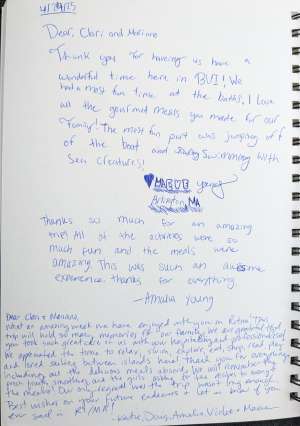 Dear, Clari and Mariano
Thank you for having us have a
wonderful time here in BVI! We
had a most fun time at the baths, I love
all the gourmet meals you made for our
family! The most fun part was jumping off
of the boat and Swimming With
Sea creatures!
MAEVE
Arlington, MA
Thanks so much for an amazing
trip! All of the activities were so
much fun and the meals were
amazing. This was such an awesome
experience. thanks for everything
- Amalia Young
Dear Clari + Mariano,
What an amazing week we have enjoyed with you on
trip will hold so many memories for our family. We are grateful that
you took such great care of us with your hospitality and professionalism.
We appreciated the time to relax, swim, explore, eat, sleep, read, play
and loved sailing between islands. Thank you for everything
including all the delicious meals aboard. We will remember
the
Best wishes on your future endeavors + let us know if you
ever sail in
- Katie, Doug, Amalia, Violet + Maeve